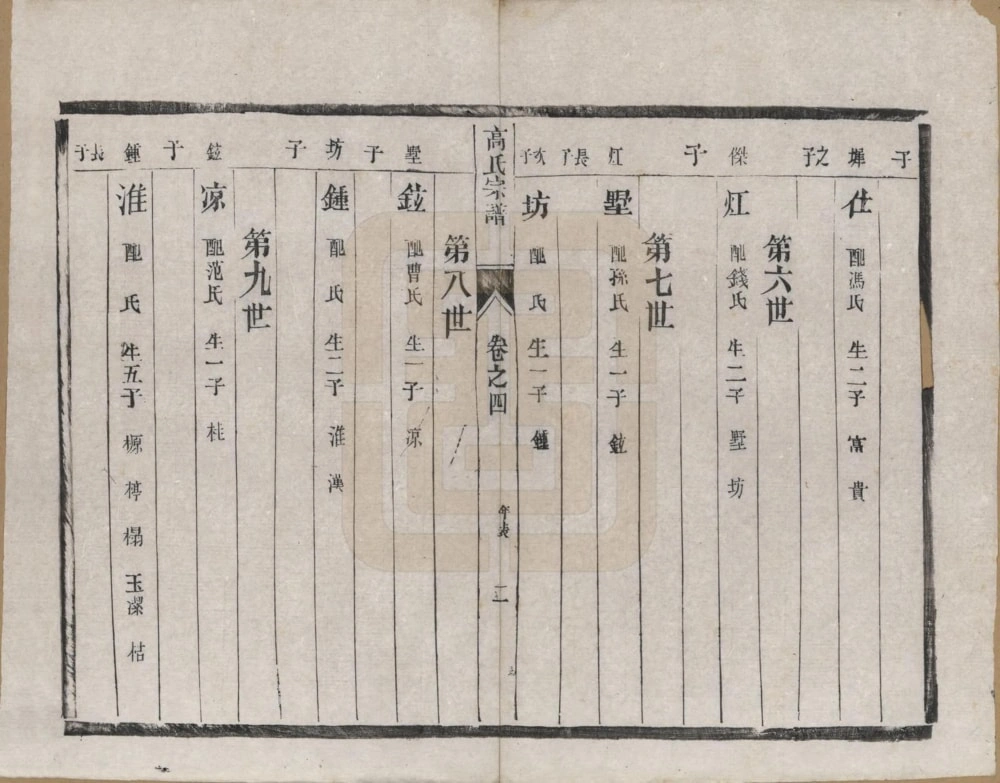 子
墀之子
仕 配馮氏 生二子 富 貴
第六世
傑子
灴 配錢氏 生二子 墅 坊
第七世
灴長子
墅 配孫氏 生一子 鉝
次子
坊 配 氏 生一子 鍾
高氏宗譜 卷之四 年表 二
第八世
墅子
鉝 配曹氏 生一子 凉
坊子
鍾 配 氏 生二子 淮 漢
第九世
鉝子
凉 配范氏 生一子 桂
鍾長子
淮 配 氏 生五子 榞 梬 榻 玉潔 枯